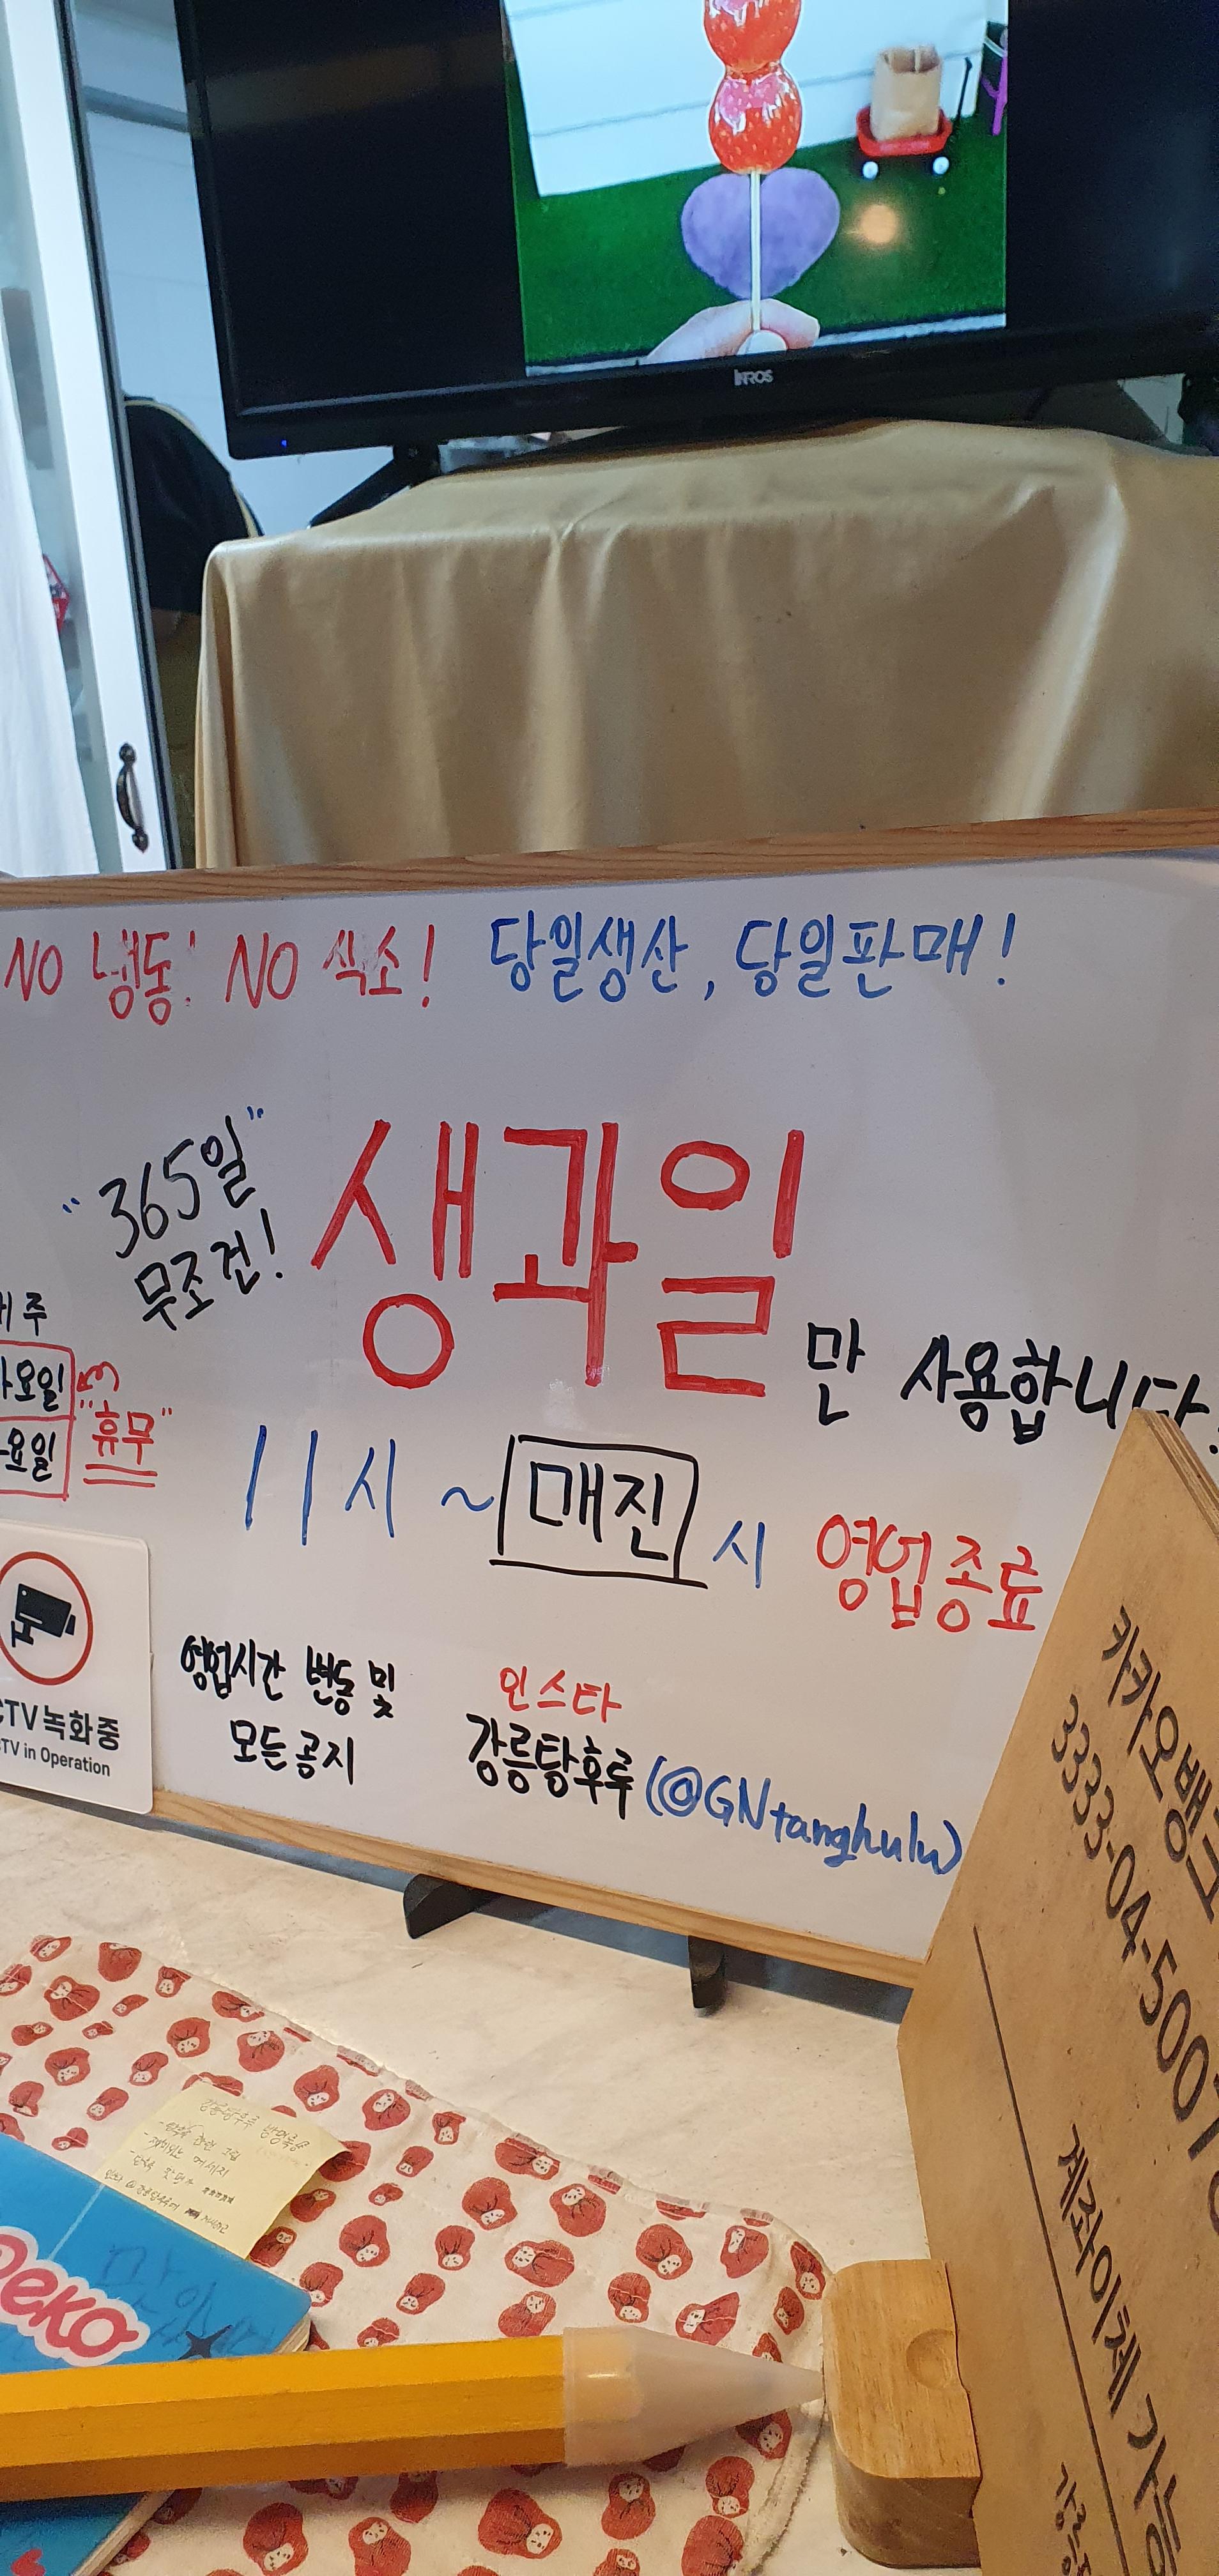 INROS
NO 냉동! NO 색소! 당일생산, 당일판매!
"365일"
무조건!
생과일
만 사용합니다.
주
요일
요일
"휴무"
11시 ~ 매진 시 영업종료
영업시간 변동 및
모든 공지
인스타
강릉탕후루 (@GNtanghulu)
CTV 녹화중
TV in Operation
카카오뱅크
3333-04-5001
계좌이체 가능
peko